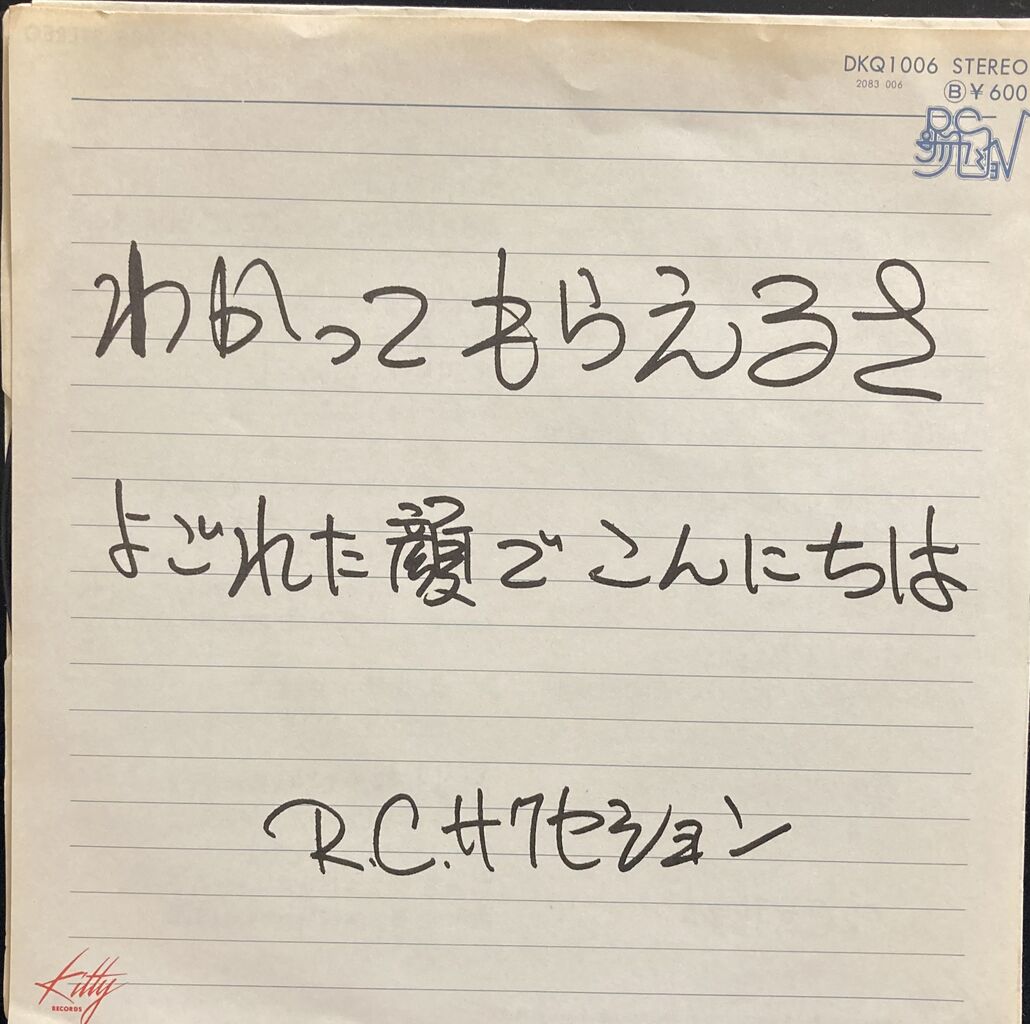 DKQ1006 STEREO
2083 006
Ⓑ¥600
RCサクセション
わかってもらえるさ
よごれた顔でこんにちは
R.C.サクセション
Kitty
RECORDS